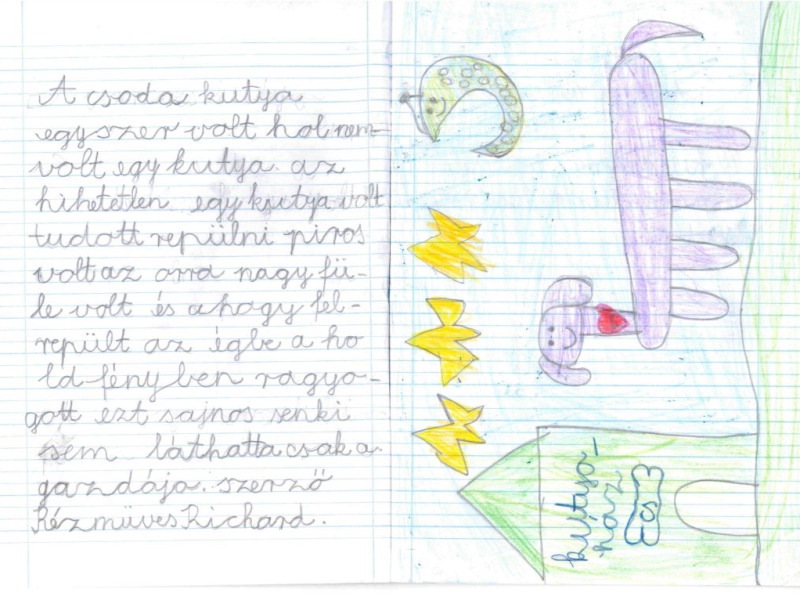 A csoda kutya
egyszer volt hol nem-
volt egy kutya. az
hihetetlen egy kutya volt
tudott repülni piros
volt az orra nagy fü-
le volt és ahogy fel-
repült az égbe a ho
ld fényben ragyo-
gott ezt sajnos senki
sem láthatta csak a
gazdája. szerző
Kézműves Richard.
kutya-
ház